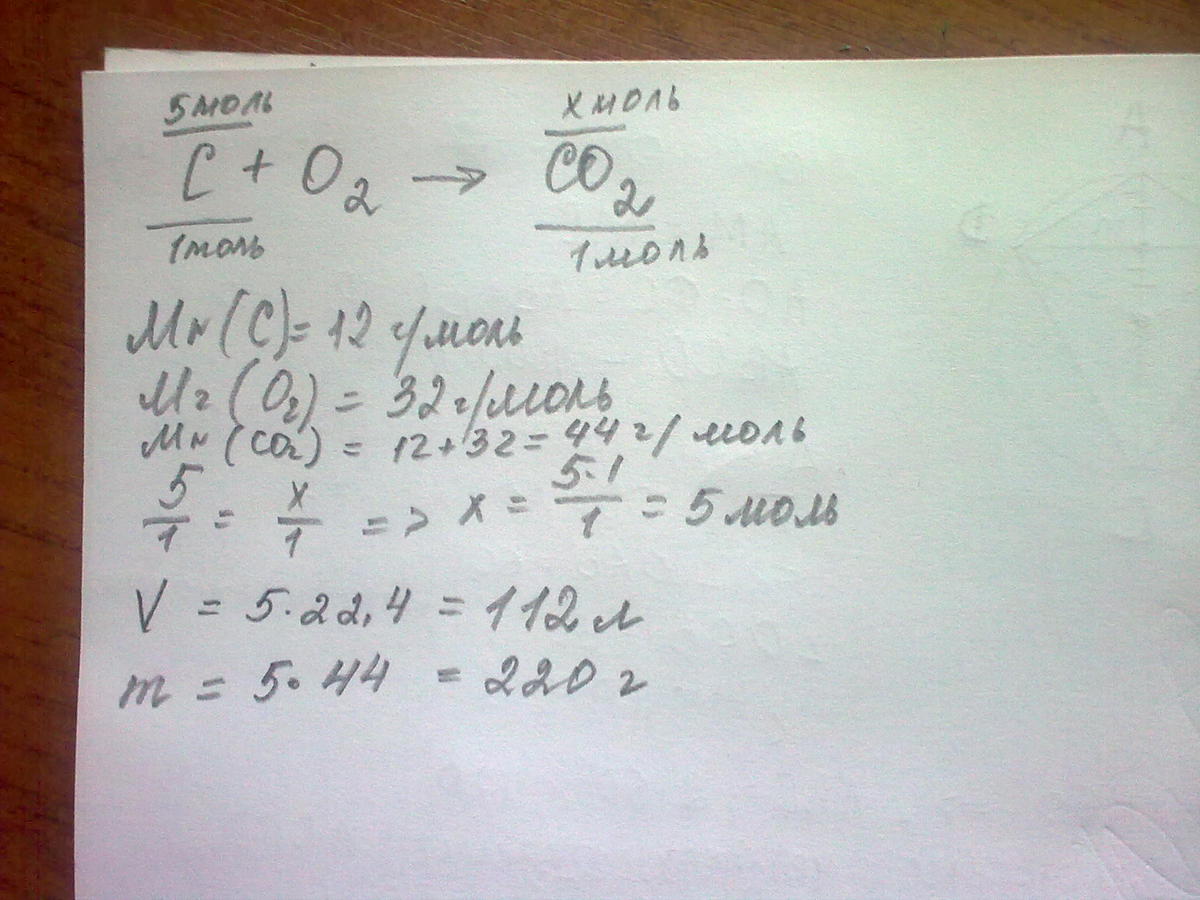 5 моль x моль
C + O₂ → CO₂
1 моль 1 моль
Mr (C) = 12 г/моль
Mr (O₂) = 32 г/моль
Mr (CO₂) = 12 + 32 = 44 г/моль
5/1 = x/1 => x = 5·1/1 = 5 моль
V = 5·22,4 = 112 л
m = 5·44 = 220 г